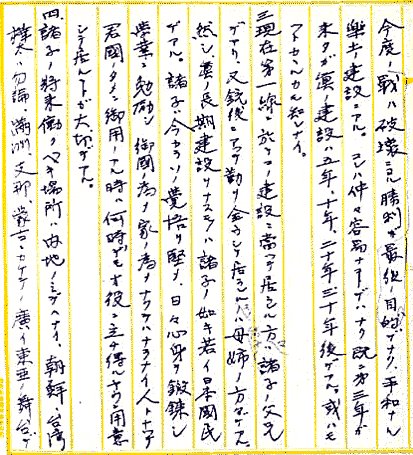 今度ノ戦ハ破壊ニヨル勝利ガ最後目的デナク、平和ナル
楽土ノ建設ニアル。コレハ仲々容易ナコトデハナク既ニ第三年ガ
来タガ真ノ建設ハ五年、十年、二十年三十年後デアル。或ハモ
アトカシルカモ知レナイ。
三、現在第一線ニ於テコノ建設ニ當ツテ居ラレル方ハ諸子ノ父兄
デアリ、又銃後ニアツテ勤リヲ全ウシテ居ラレルハ母姉ノ方々デアル
然シ真ノ長期建設ヲナスモノハ諸子ノ如キ若イ日本國民
デアル。諸子ハ今カラソノ覚悟ヲ堅メ、日々心身ヲ鍛錬シ
学業ニ勉励シ御國ノ為メ家ノ為メナクテハナラナイ人トナツテ
君國ノタメニ御用トナル時ハ何時デモオ役ニ立チ得ルヤウ用意
シテ居ルコトガ大切デアル。
四、諸子ノ将来働クベキ場所ハ内地ノミデハナイ。朝鮮、台湾
樺太ハ勿論、満洲、支那、蒙古ニカケテノ廣イ東亜ノ舞台デ